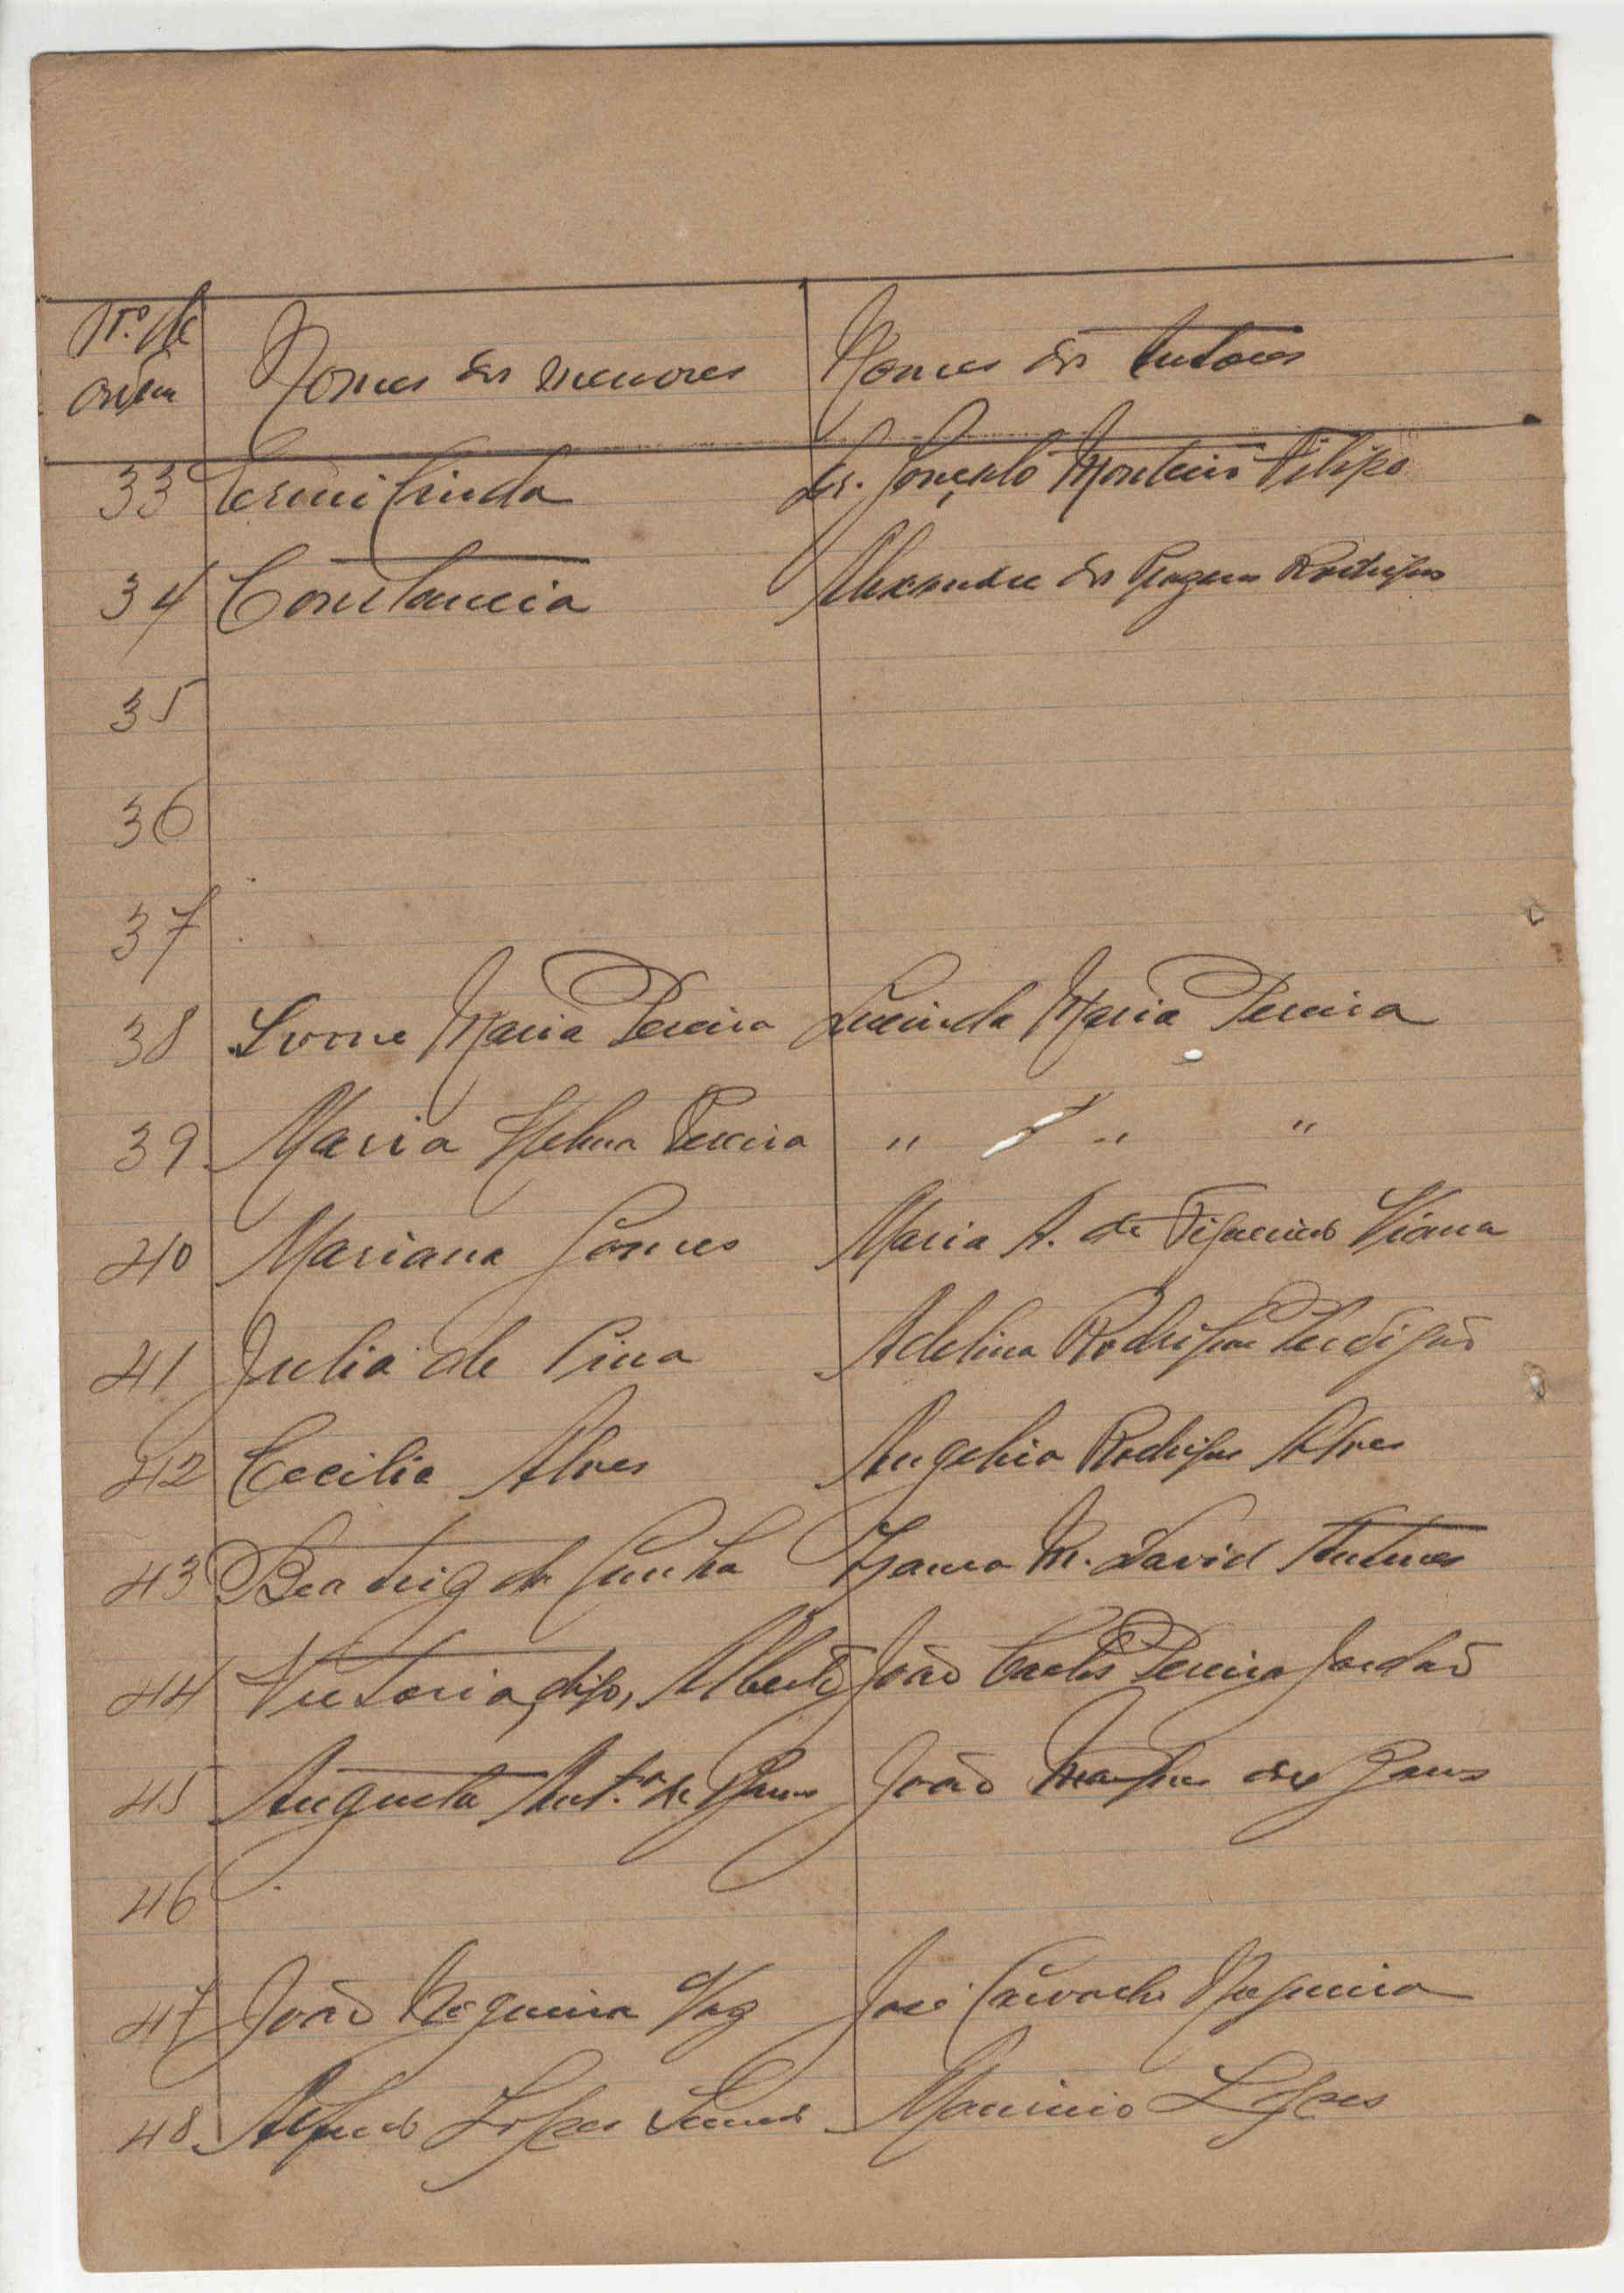 N.º de ordem Nomes dos menores Nomes dos tutores
33 Dr. Gonçalo Monteiro Filipe
34 Constancia Alexandre dos Rodrigues
35
36
37
38 Ivone Maria Pereira Lucinda Maria Pereira
39 Maria Helena Pereira " " "
40 Mariana Gomes Maria A. de Figueiredo Viana
41 Julia de Pina Adelina Rodrigues Perdigão
42 Cecilia Alves Rodrigues Alves
43 Beatriz da Cunha M. David Antunes
44 Victoria, digo, Alberto João Carlos Pereira Jordão
45 Augusta Ant.ª de João Marques de
46
47 João Nogueira Vaz José Nogueira
48 Alfredo Lopes Lopes